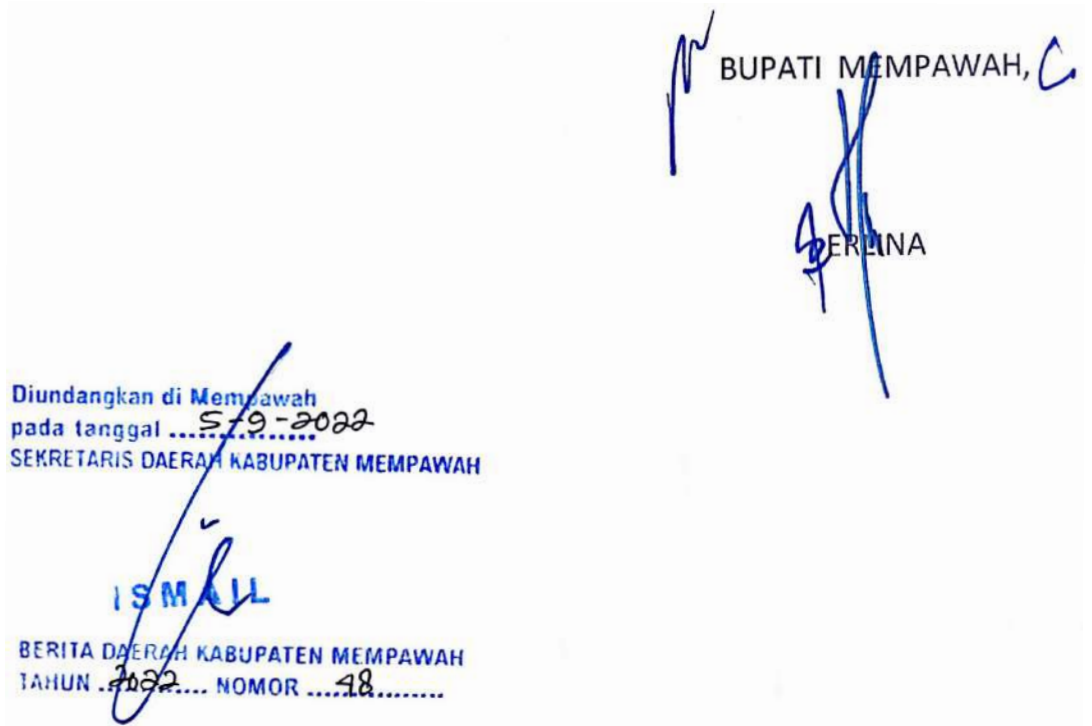 BUPATI MEMPAWAH,
ERLINA
Diundangkan di Mempawah
pada tanggal ..... 5-9-2022
SEKRETARIS DAERAH KABUPATEN MEMPAWAH
ISMAIL
BERITA DAERAH KABUPATEN MEMPAWAH
TAHUN ..2022.... NOMOR ....48........